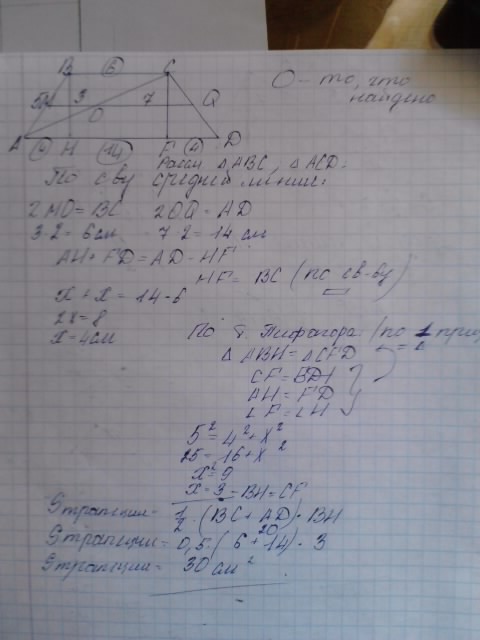 O - то, что
найдено
B 6 C
5 M 3 O 7 Q
A 4 H 14 F 4 D
Рассм. △ABC, △ACD.
По св-ву средней линии:
2MO = BC 2OQ = AD
3·2 = 6см 7·2 = 14 см
AH + FD = AD - HF
HF = BC (по св-ву)
x + x = 14 - 6
2x = 8
x = 4см
По т. Пифагора: (по 1 приз
△ABH = △CFD
AH = FD
∠F = ∠H
5² = 4² + x²
25 = 16 + x²
x² = 9
x = 3 = BH = CF
Sтрапеции = 1/2 · (BC + AD) · BH
20
Sтрапеции = 0,5 · (6 + 14) · 3
Sтрапеции = 30 см²